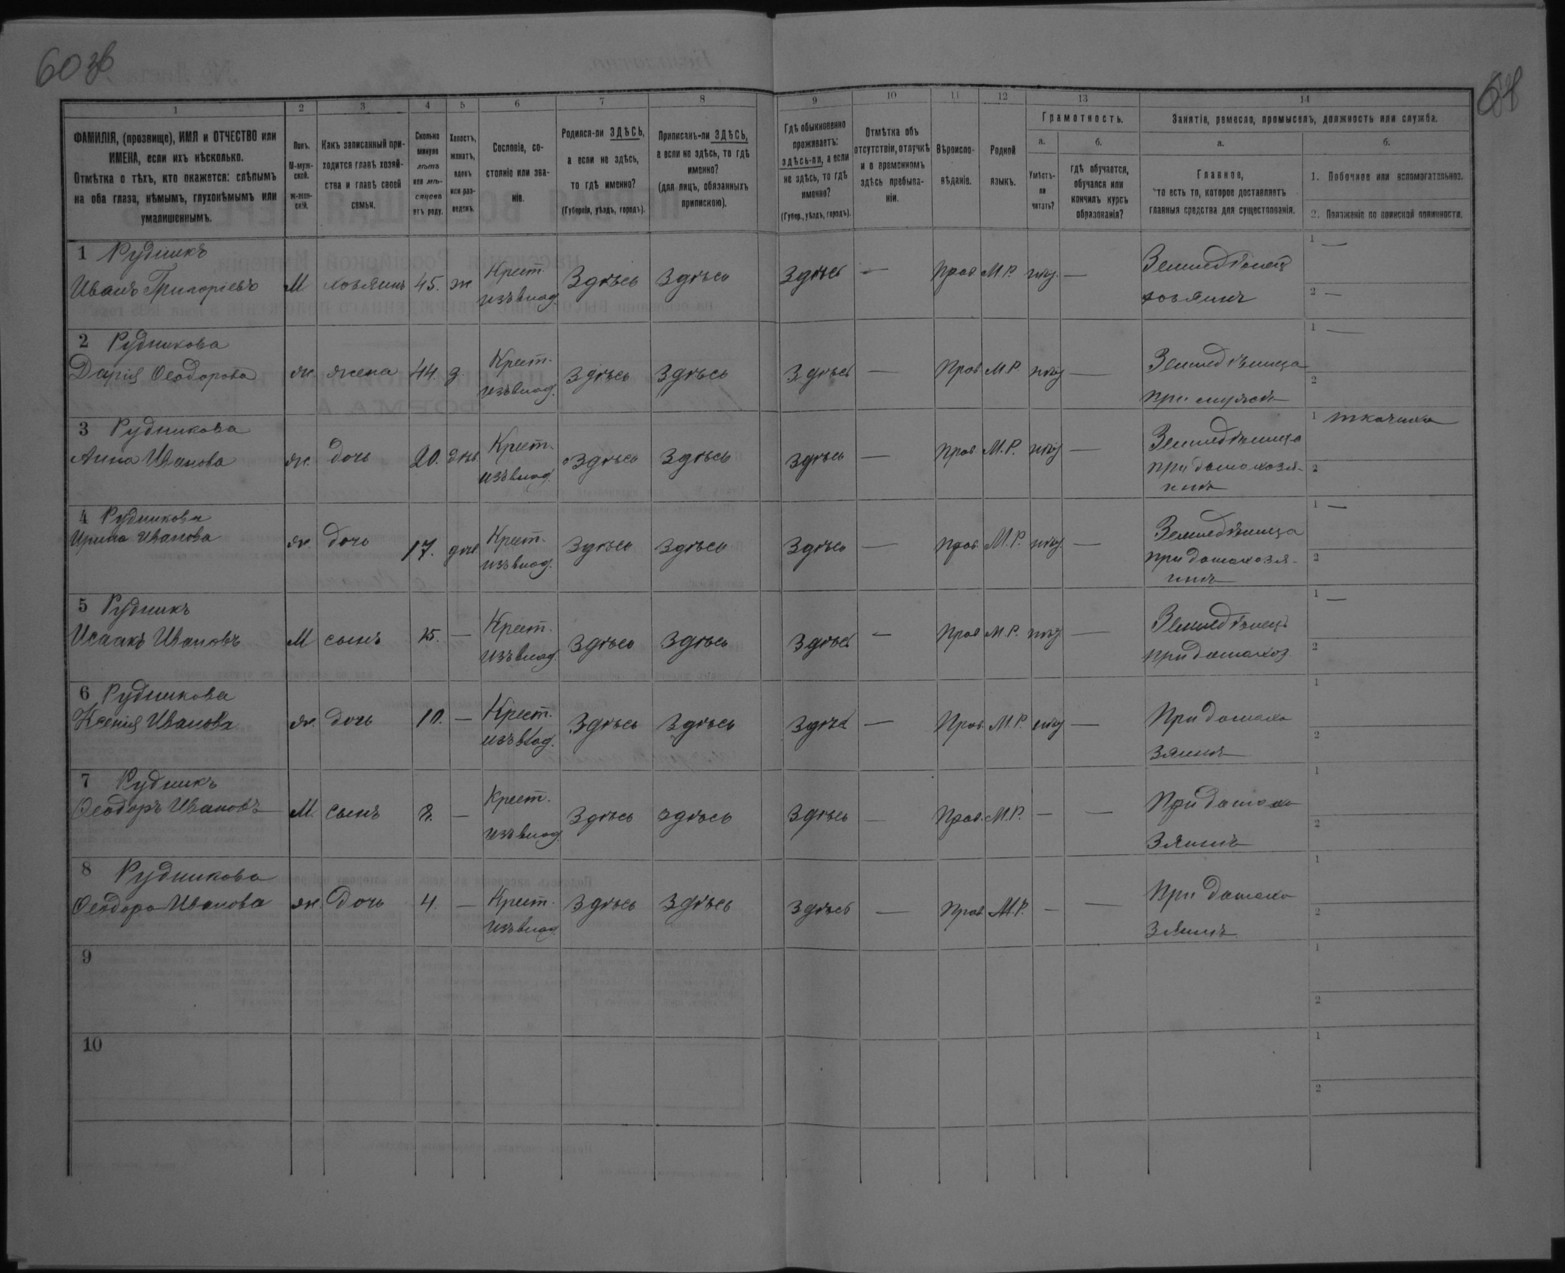 60 об
1
2
3
4
5
6
7
8
9
10
11
12
13
14
ФАМИЛІЯ, (прозвище), ИМЯ и ОТЧЕСТВО или
ИМЕНА, если ихъ нѣсколько.
Отмѣтка о тѣхъ, кто окажется: слѣпымъ
на оба глаза, нѣмымъ, глухонѣмымъ или
умалишеннымъ.
Полъ.
М-муж-
ской.
ж-жен-
скій.
Какъ записанный при-
ходится главѣ хозяй-
ства и главѣ своей
семьи.
Сколько
минуло
лѣтъ
или мѣ-
сяцевъ
отъ роду.
Холостъ,
женатъ,
вдовъ
или раз-
веденъ.
Сословіе, со-
стояніе или зва-
ніе.
Родился-ли ЗДѢСЬ,
а если не здѣсь,
то гдѣ именно?
(Губернія, уѣздъ, городъ).
Приписанъ-ли ЗДѢСЬ,
а если не здѣсь, то гдѣ
именно?
(для лицъ, обязанныхъ
припискою).
Гдѣ обыкновенно
проживаетъ:
здѣсь-ли, а если
не здѣсь, то гдѣ
именно?
(Губер., уѣздъ, городъ).
Отмѣтка объ
отсутствіи, отлучкѣ
и о временномъ
здѣсь пребыва-
ніи.
Вѣроиспо-
вѣданіе.
Родной
языкъ.
Грамотность.
а.
Умѣетъ-
ли
читать?
б.
гдѣ обучается,
обучался или
кончилъ курсъ
образованія?
Занятія, ремесло, промыселъ, должность или служба.
а.
Главное,
то есть то, которое доставляетъ
главныя средства для существованія.
б.
1. Побочное или вспомогательное.
2. Положеніе по воинской повинности.
1 Рудникъ
Иванъ Григоріевъ М хозяинъ 45. ж Крест. изъ влад. Здѣсь Здѣсь Здѣсь — Прав М.Р. нѣт — Земледѣлец хозяинъ 1 — 2 —
2 Рудникова
Дарія Ѳеодорова ж жена 44. з Крест. изъ влад. Здѣсь Здѣсь Здѣсь — Прав М.Р. нѣт — Земледѣлица при мужѣ 1 — 2
3 Рудникова
Анна Иванова ж дочь 20. дѣв Крест. изъ влад. Здѣсь Здѣсь Здѣсь — Прав М.Р. нѣт — Земледѣлица при домохозя-инѣ 1 ткачиха 2
4 Рудникова
Ирина Иванова ж дочь 17. дѣв Крест. изъ влад. Здѣсь Здѣсь Здѣсь — Прав М.Р. нѣт — Земледѣлица при домохозя-инѣ 1 — 2
5 Рудникъ
Исаакъ Ивановъ М сынъ 15. — Крест. изъ влад. Здѣсь Здѣсь Здѣсь — Прав М.Р. нѣт — Земледѣлецъ при домохоз 1 — 2
6 Рудникова
Ксенія Иванова ж дочь 10. — Крест. изъ влад. Здѣсь Здѣсь Здѣсь — Прав М.Р. нѣт — При домохо зяинѣ 1 2
7 Рудникъ
Ѳеодоръ Ивановъ М. сынъ 8. — Крест. изъ влад Здѣсь Здѣсь Здѣсь — Прав. М.Р. — — При домохо зяинѣ 1 2
8 Рудникова
Ѳеодора Иванова ж дочь 4 — Крест. изъ влад Здѣсь Здѣсь Здѣсь — Прав М.Р. — — При домохо зяинѣ 1 2
9 1 2
10 1 2